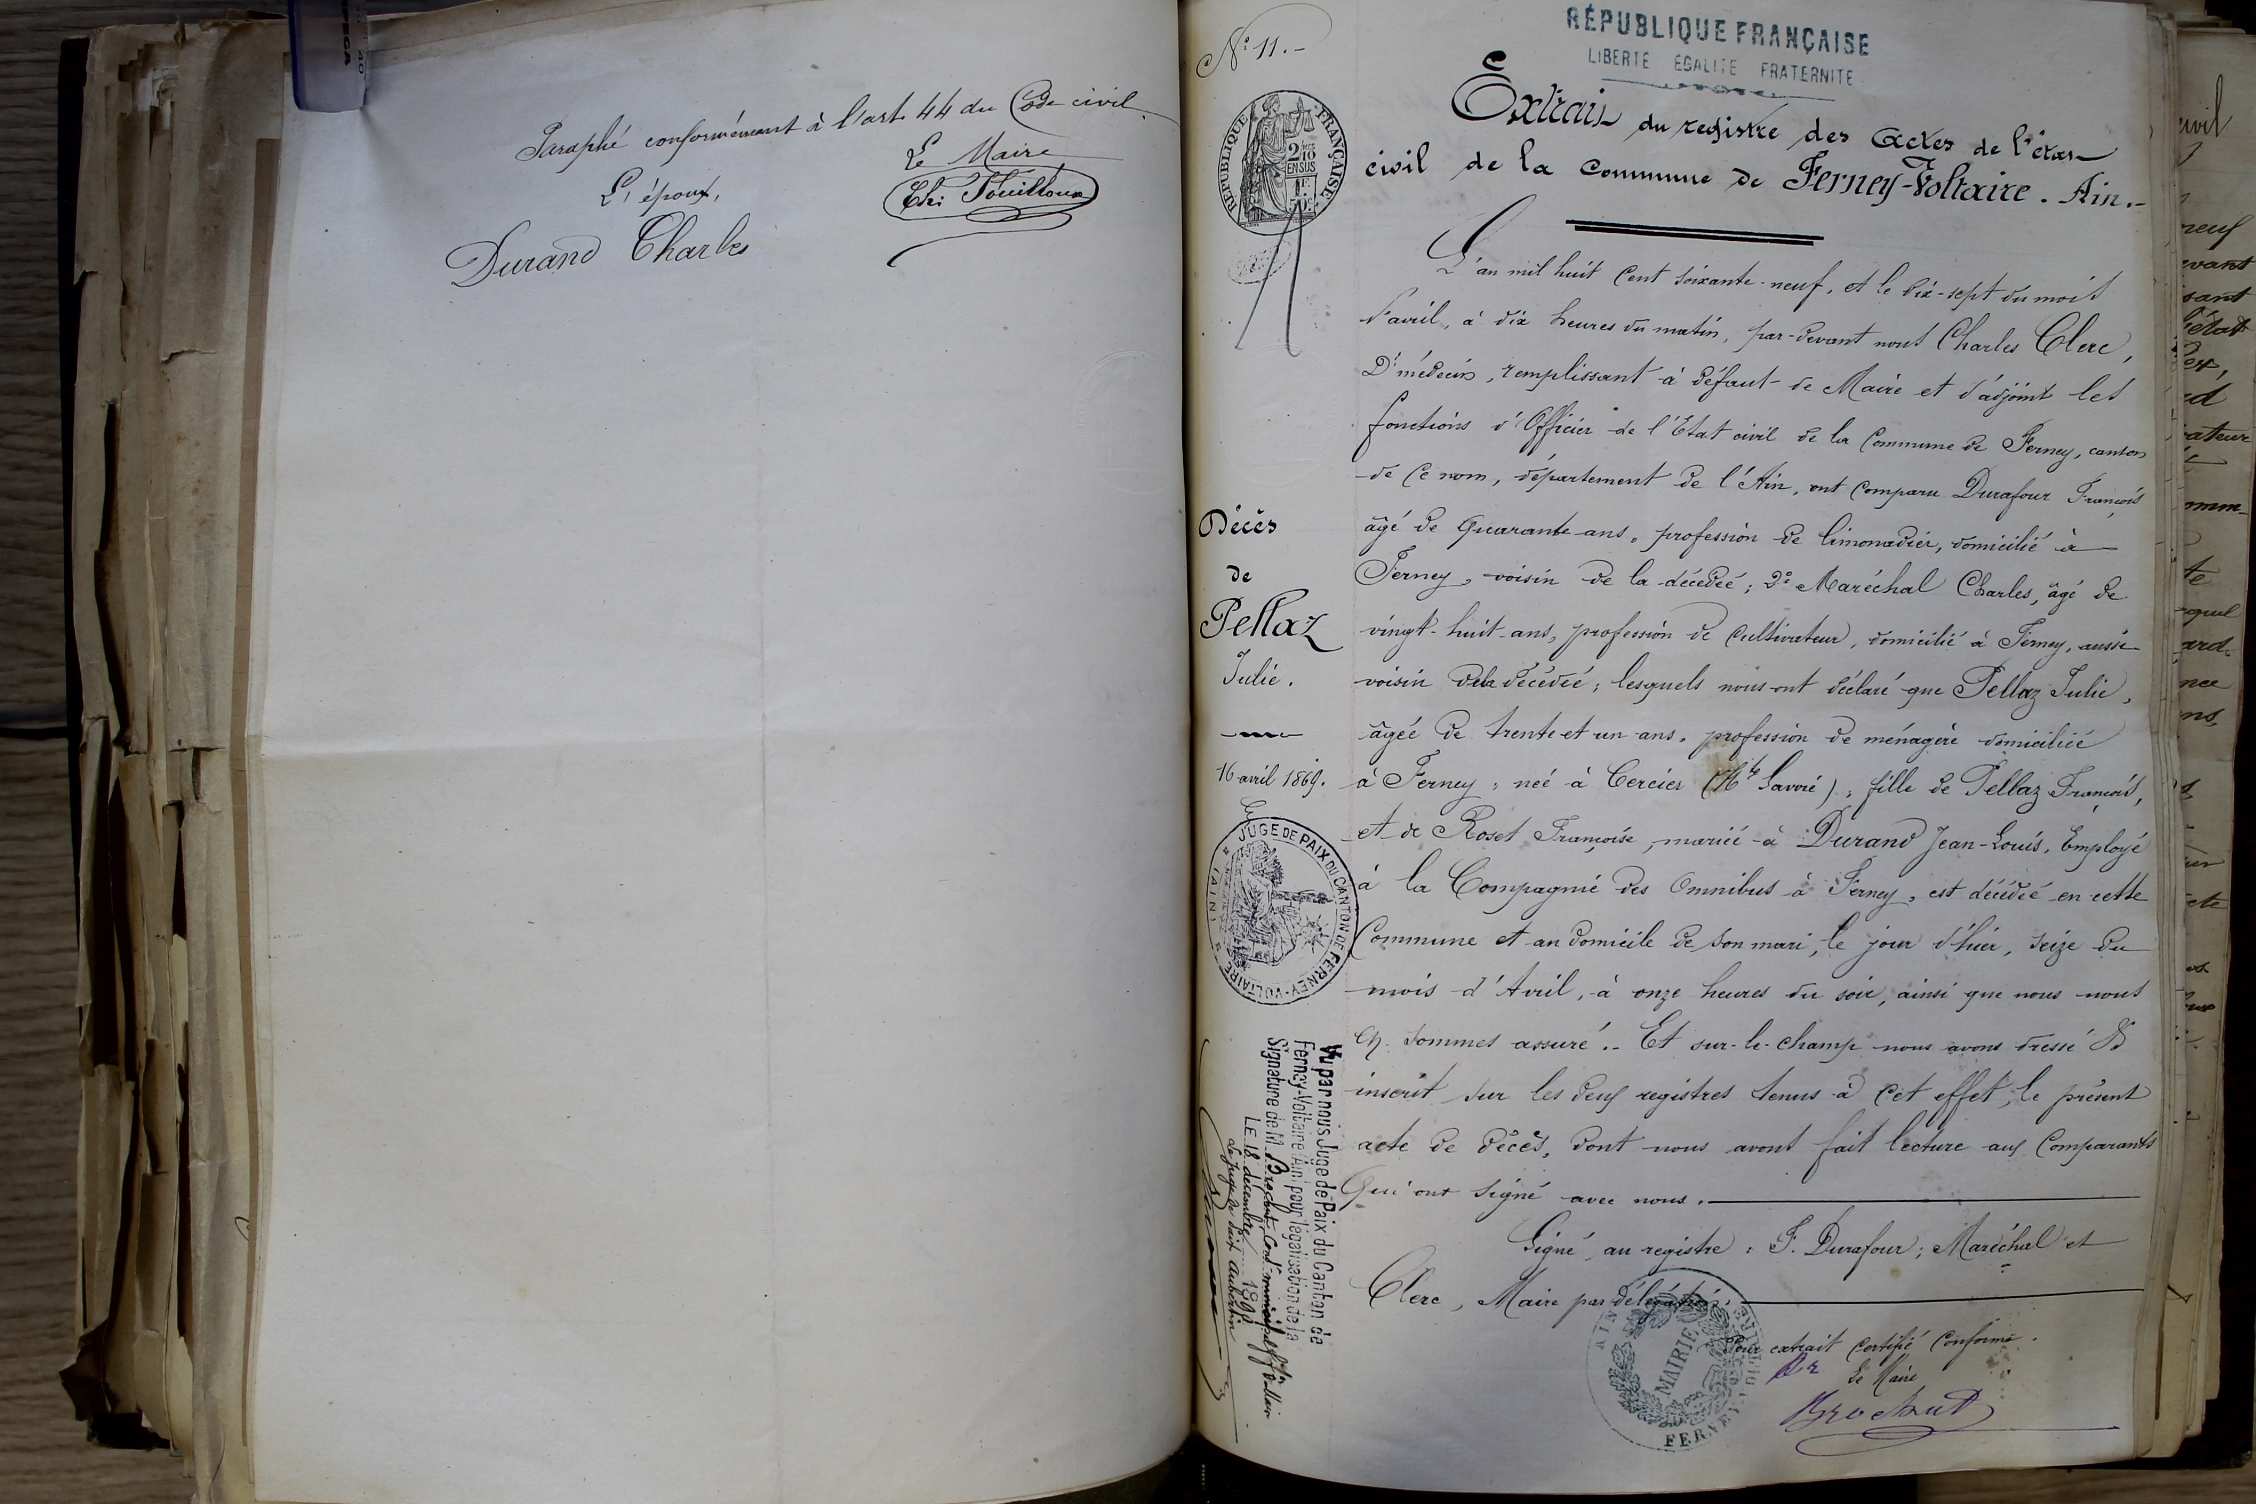 Paraphé conformément à l'art. 44 du Code civil.
Le Maire
L'époux,
Durand Charles
N° 11.-
RÉPUBLIQUE FRANÇAISE
LIBERTE EGALITE FRATERNITE
Extrait du registre des Actes de l'état
civil de la Commune de Ferney-Voltaire. Ain.-
REPUBLIQUE FRANÇAISE
2/10
EN SUS
L'an mil huit cent soixante-neuf, et le dix-sept du mois
d'avril, à dix heures du matin, par-devant nous Charles Clerc,
Dr médecin, remplissant à défaut de Maire et d'adjoint les
fonctions d'Officier de l'Etat civil de la Commune de Ferney, canton
de ce nom, département de l'Ain, ont comparu Durafour François
âgé de quarante ans, profession de limonadier, domicilié à
Ferney, voisin de la décédée; 2° Maréchal Charles, âgé de
vingt-huit ans, profession de cultivateur, domicilié à Ferney, aussi
voisin de la décédée; lesquels nous ont déclaré que Pellaz Julie,
âgée de trente et un ans, profession de ménagère domiciliée
à Ferney, née à Cercier (Hte Savoie), fille de Pellaz François,
et de Roset Françoise, mariée à Durand Jean-Louis, Employé
à la Compagnie des Omnibus à Ferney, est décédée en cette
Commune et au domicile de son mari, le jour d'hier, seize du
mois d'Avril, à onze heures du soir, ainsi que nous nous
en sommes assuré.- Et sur-le-champ nous avons dressé &
inscrit sur les deux registres tenus à cet effet, le présent
acte de décès, dont nous avons fait lecture aux Comparants
Qui ont signé avec nous.
Signé au registre: F. Durafour; Maréchal et
Clerc, Maire par délégation.
Pour extrait certifié conforme.
Le Maire
Brochut
MAIRIE
AIN
Décès
de
Pellaz
Julie.
16 avril 1869.
JUGE DE PAIX DU CANTON DE FERNEY-VOLTAIRE
(AIN)
Vu par nous Juge de Paix du Canton de
Ferney-Voltaire (Ain) pour légalisation de la
Signature de M. Brochut Consr municipal
LE 18 décembre 189
Le Juge de Paix